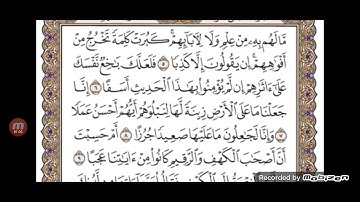 مَّا لَهُم بِهِۦ مِنْ عِلْمٍ وَلَا لِءَابَآئِهِمْ ۚ كَبُرَتْ كَلِمَةً تَخْرُجُ مِنْ
أَفْوَٰهِهِمْ ۚ إِن يَقُولُونَ إِلَّا كَذِبًا ٥ فَلَعَلَّكَ بَٰخِعٌ نَّفْسَكَ
عَلَىٰٓ ءَاثَٰرِهِمْ إِن لَّمْ يُؤْمِنُوا۟ بِهَٰذَا ٱلْحَدِيثِ أَسَفًا ٦ إِنَّا
جَعَلْنَا مَا عَلَى ٱلْأَرْضِ زِينَةً لَّهَا لِنَبْلُوَهُمْ أَيُّهُمْ أَحْسَنُ عَمَلًا
٧ وَإِنَّا لَجَٰعِلُونَ مَا عَلَيْهَا صَعِيدًا جُرُزًا ٨ أَمْ حَسِبْتَ
أَنَّ أَصْحَٰبَ ٱلْكَهْفِ وَٱلرَّقِيمِ كَانُوا۟ مِنْ ءَايَٰتِنَا عَجَبًا ٩
Recorded by Mobizen